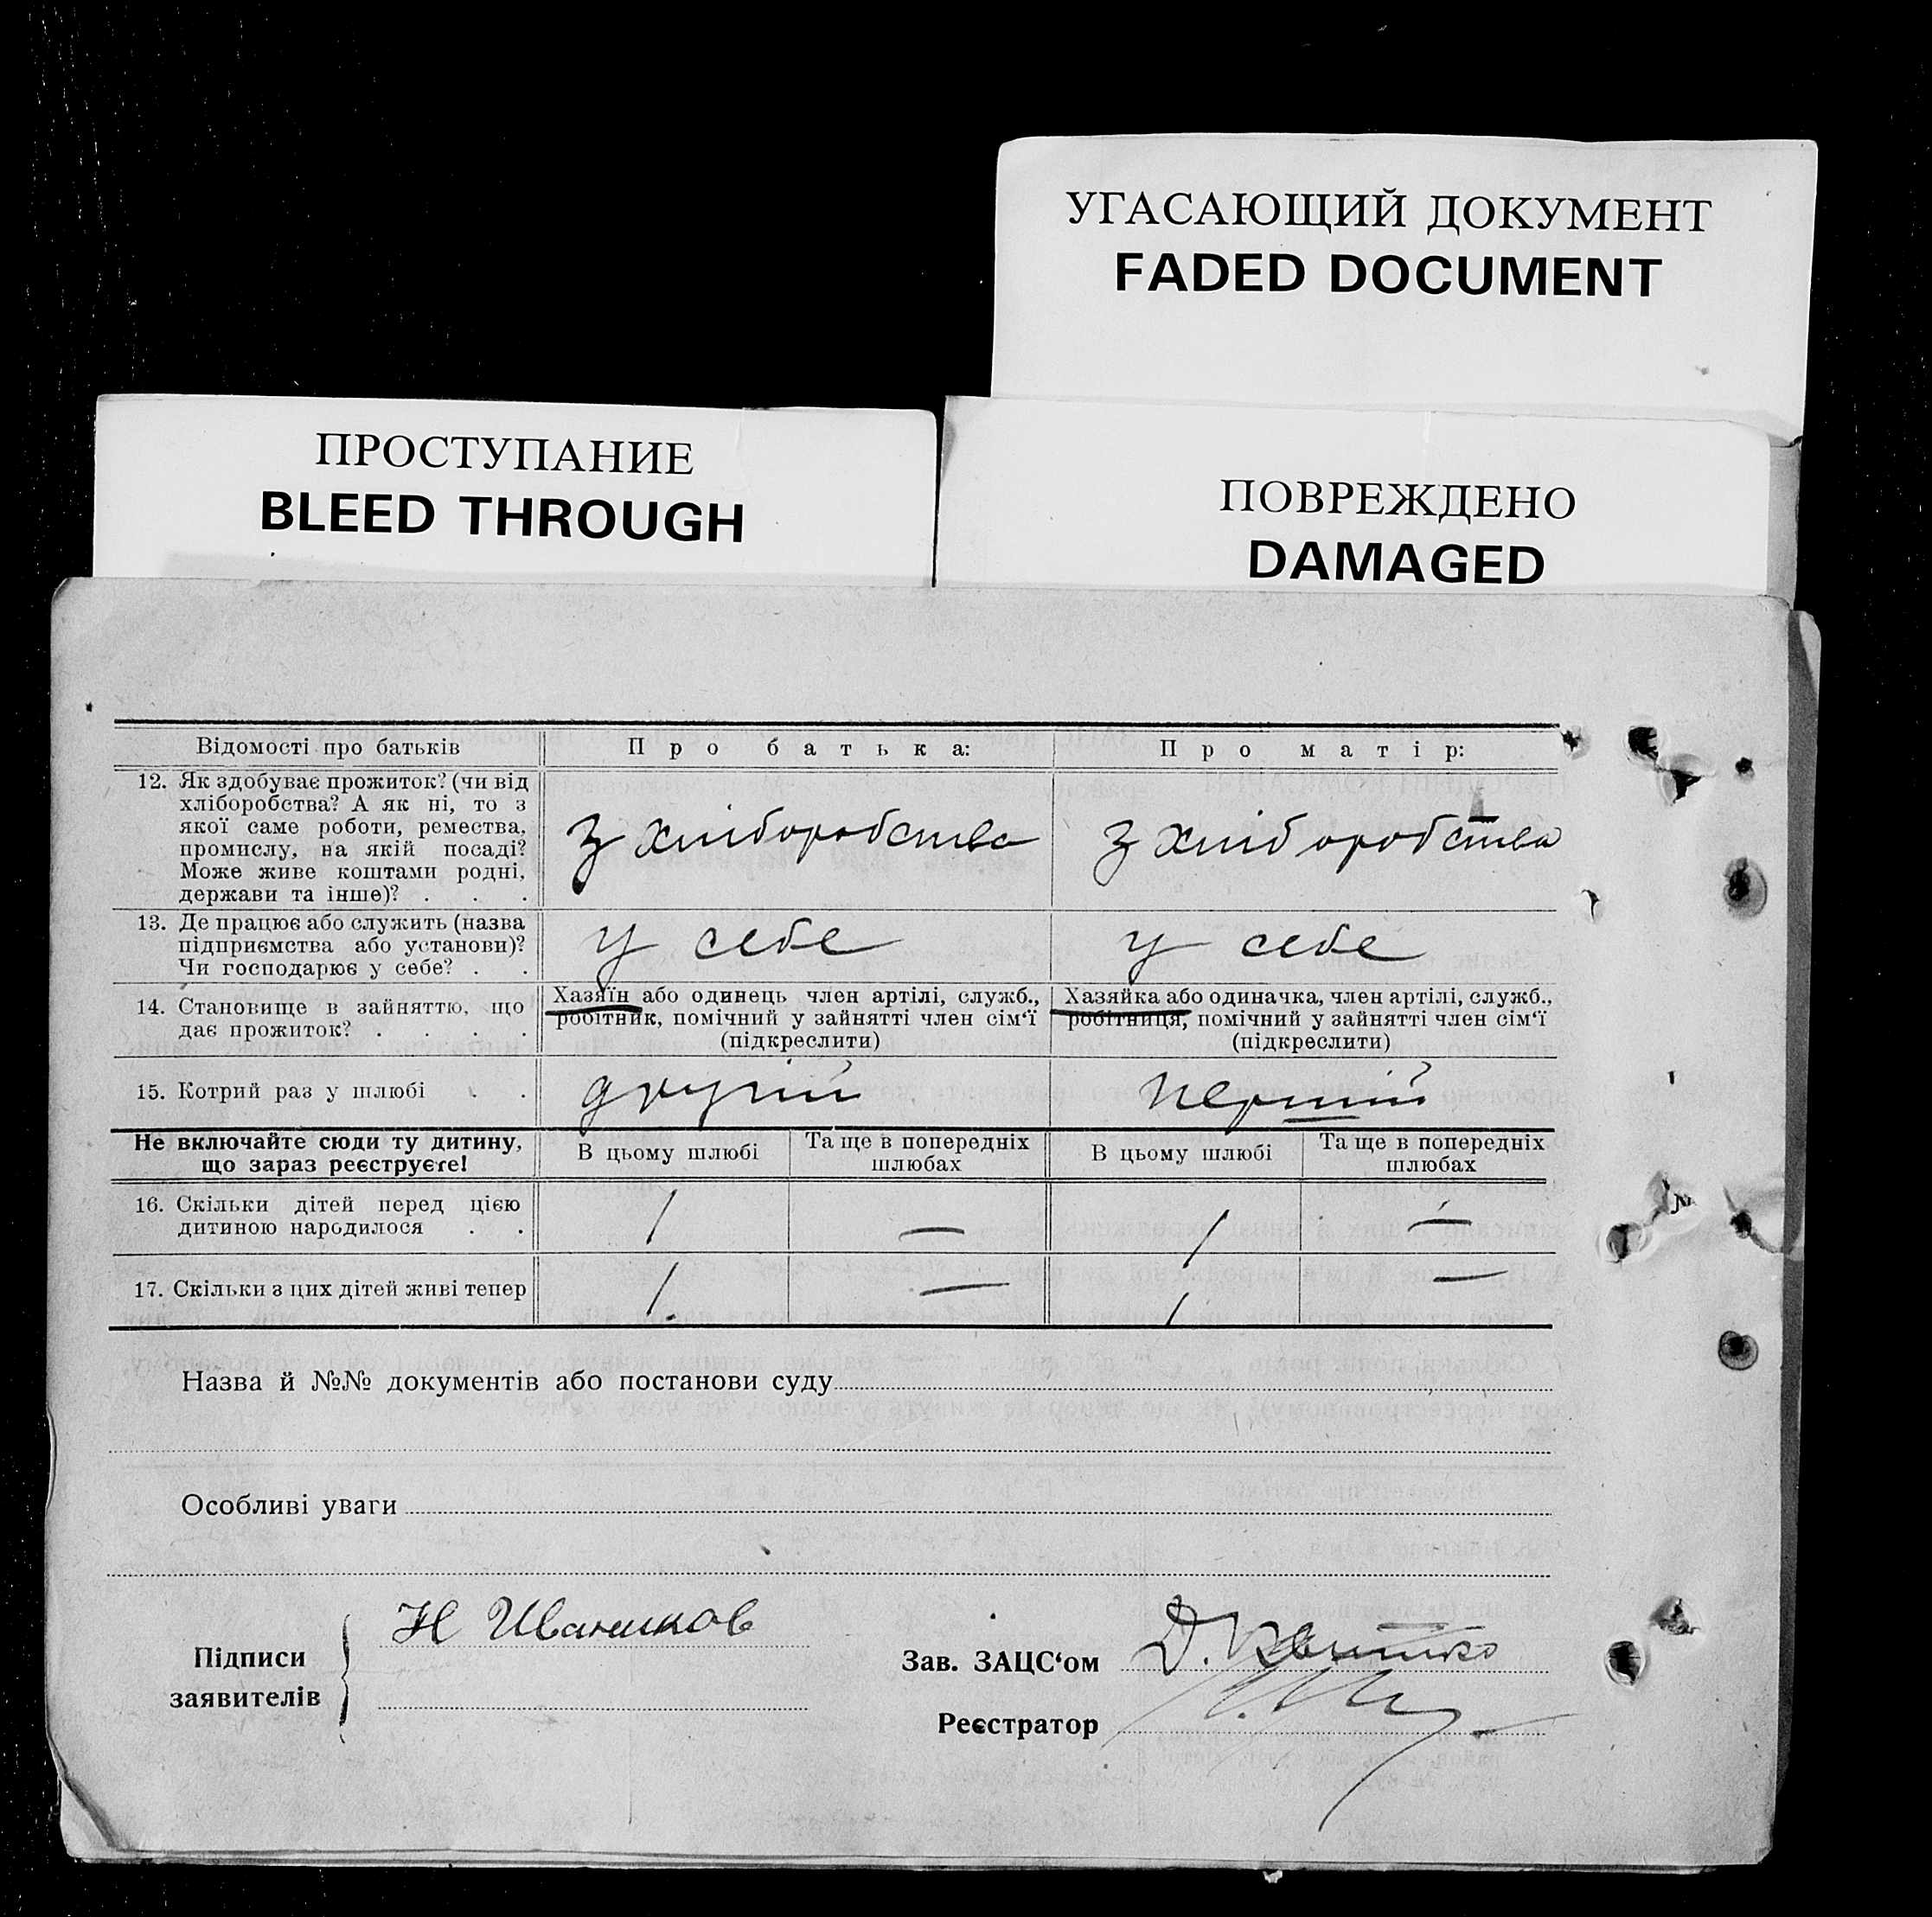 УГАСАЮЩИЙ ДОКУМЕНТ
FADED DOCUMENT
ПРОСТУПАНИЕ
BLEED THROUGH
ПОВРЕЖДЕНО
DAMAGED
Відомості про батьків
Про батька:
Про матір:
12. Як здобуває прожиток? (чи від
хліборобства? А як ні, то з
якої саме роботи, ремества,
промислу, на якій посаді?
Може живе коштами родні,
держави та інше)? . . .
З хліборобства
З хліборобства
13. Де працює або служить (назва
підприємства або установи)?
Чи господарює у себе? . .
у себе
у себе
14. Становище в зайняттю, що
дає прожиток? . . . .
Хазяїн або одинець член артілі, служб.,
робітник, помічний у зайнятті член сім‘ї
(підкреслити)
Хазяйка або одиначка, член артілі, служб.,
робітниця, помічний у зайнятті член сім‘ї
(підкреслити)
15. Котрий раз у шлюбі . .
другий
перший
Не включайте сюди ту дитину,
що зараз реєструєте!
В цьому шлюбі
Та ще в попередніх
шлюбах
В цьому шлюбі
Та ще в попередніх
шлюбах
16. Скільки дітей перед цією
дитиною народилося . .
1 — 1 —
17. Скільки з цих дітей живі тепер
1. — 1 —
Назва й №№ документів або постанови суду
Особливі уваги
Підписи
заявителів
Зав. ЗАЦС‘ом
Реєстратор